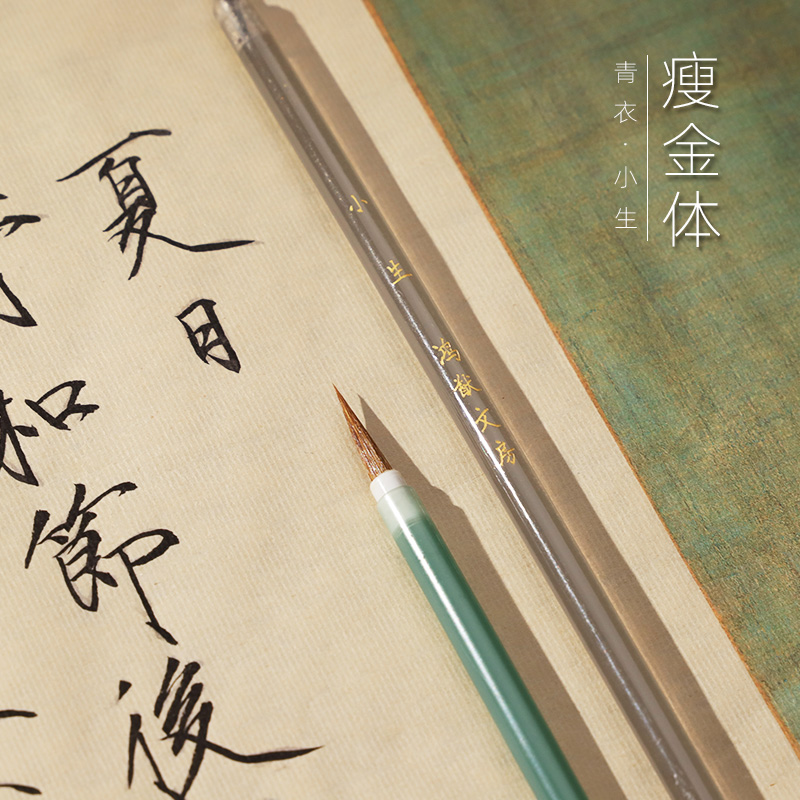 瘦金体
青衣·小生
小生 鸿猷文房
夏日
和節後